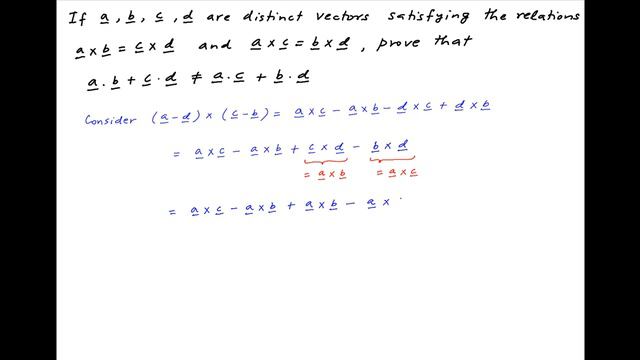 If a, b, c, d are distinct vectors satisfying the relations
a × b = c × d and a × c = b × d, prove that
a . b + c . d ≠ a . c + b . d
Consider (a - d) × (c - b) = a × c - a × b - d × c + d × b
= a × c - a × b + c × d - b × d
= a × b = a × c
= a × c - a × b + a × b - a ×